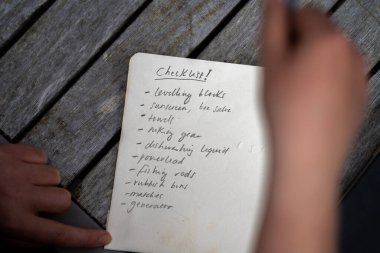 Checklist!
- levelling blocks
- sunscreen, bee sabe
- towels
- hiking gear
- dishwashing liquid
- powerlead
- fishing rods
- rubbish bins
- matches
- generator